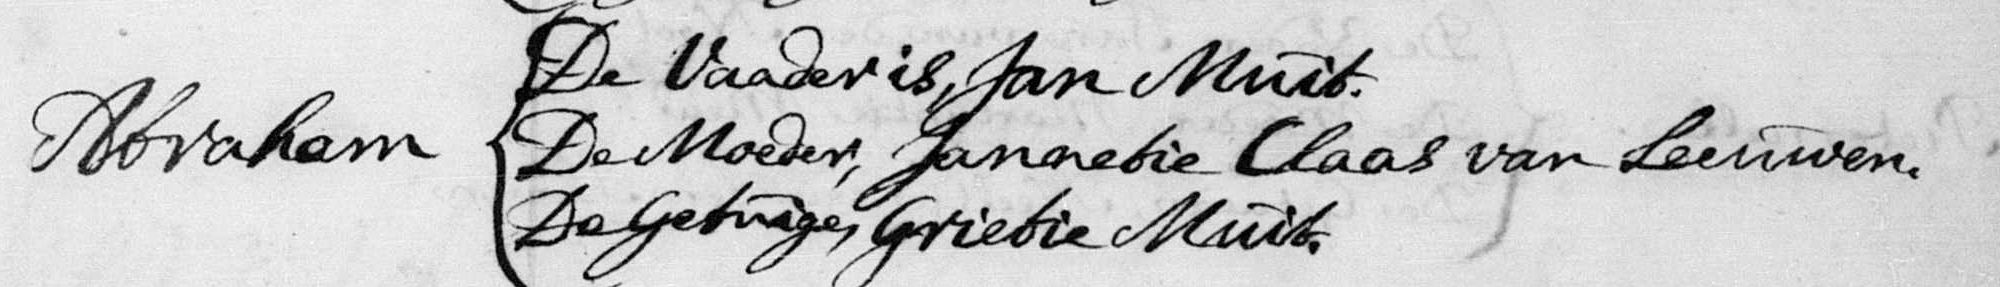 De Vaader is, Jan Muit.
Abraham De Moeder, Jannetie Claas van Leeuwen.
De Getuige, Grietie Muit.